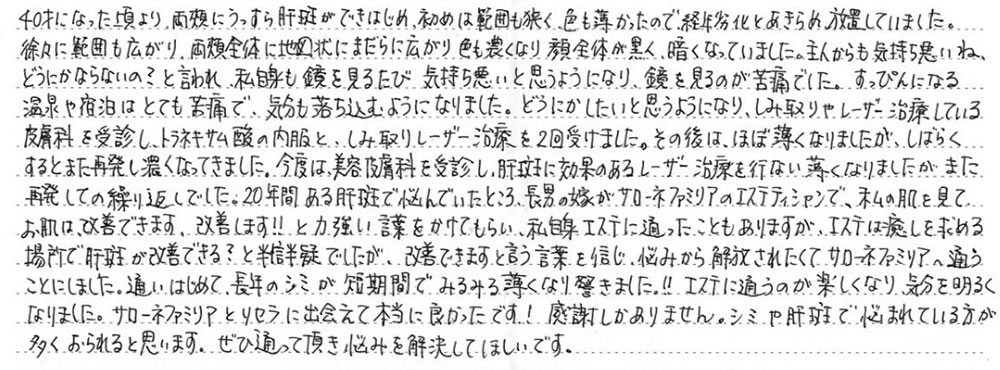 40才になった頃より、両頬にうっすら肝斑ができはじめ、初めは範囲も狭く、色も薄かったので経年劣化とあきらめ、放置していました。
徐々に範囲も広がり、両頬全体に地図状にまだらに広がり色も濃くなり顔全体が黒く、暗くなっていました。主人からも気持ち悪いね、
どうにかならないの?と言われ、私自身も鏡を見るたび気持ち悪いと思うようになり、鏡を見るのが苦痛でした。すっぴんになる
温泉や宿泊はとても苦痛で、気分も落ち込むようになりました。どうにかしたいと思うようになり、しみ取りやレーザー治療している
皮膚科を受診し、トラネキサム酸の内服と、しみ取りレーザー治療を2回受けました。その後は、ほぼ薄くなりましたが、しばらく
するとまた再発し濃くなってきました。今度は、美容皮膚科を受診し、肝斑に効果のあるレーザー治療を行ない薄くなりましたがまた
再発しての繰り返しでした。20年間ある肝斑で悩んでいたところ、長男の嫁がサローネファミリアのエステティシャンで、私の肌を見て
お肌は、改善できます、改善します!!と力強い言葉をかけてもらい、私自身エステに通ったこともありますが、エステは癒しを求める
場所で肝斑が改善できる?と半信半疑でしたが、改善できますと言う言葉を信じ、悩みから解放されたくてサローネファミリアへ通う
ことにしました。通いはじめて、長年のシミが短期間でみるみる薄くなり驚きました。!!エステに通うのが楽しくなり、気分も明るく
なりました。サローネファミリアとリセラに出会えて本当に良かったです!感謝しかありません。シミや肝斑で悩まれている方が
多くおられると思います。ぜひ通って頂き悩みを解決してほしいです。